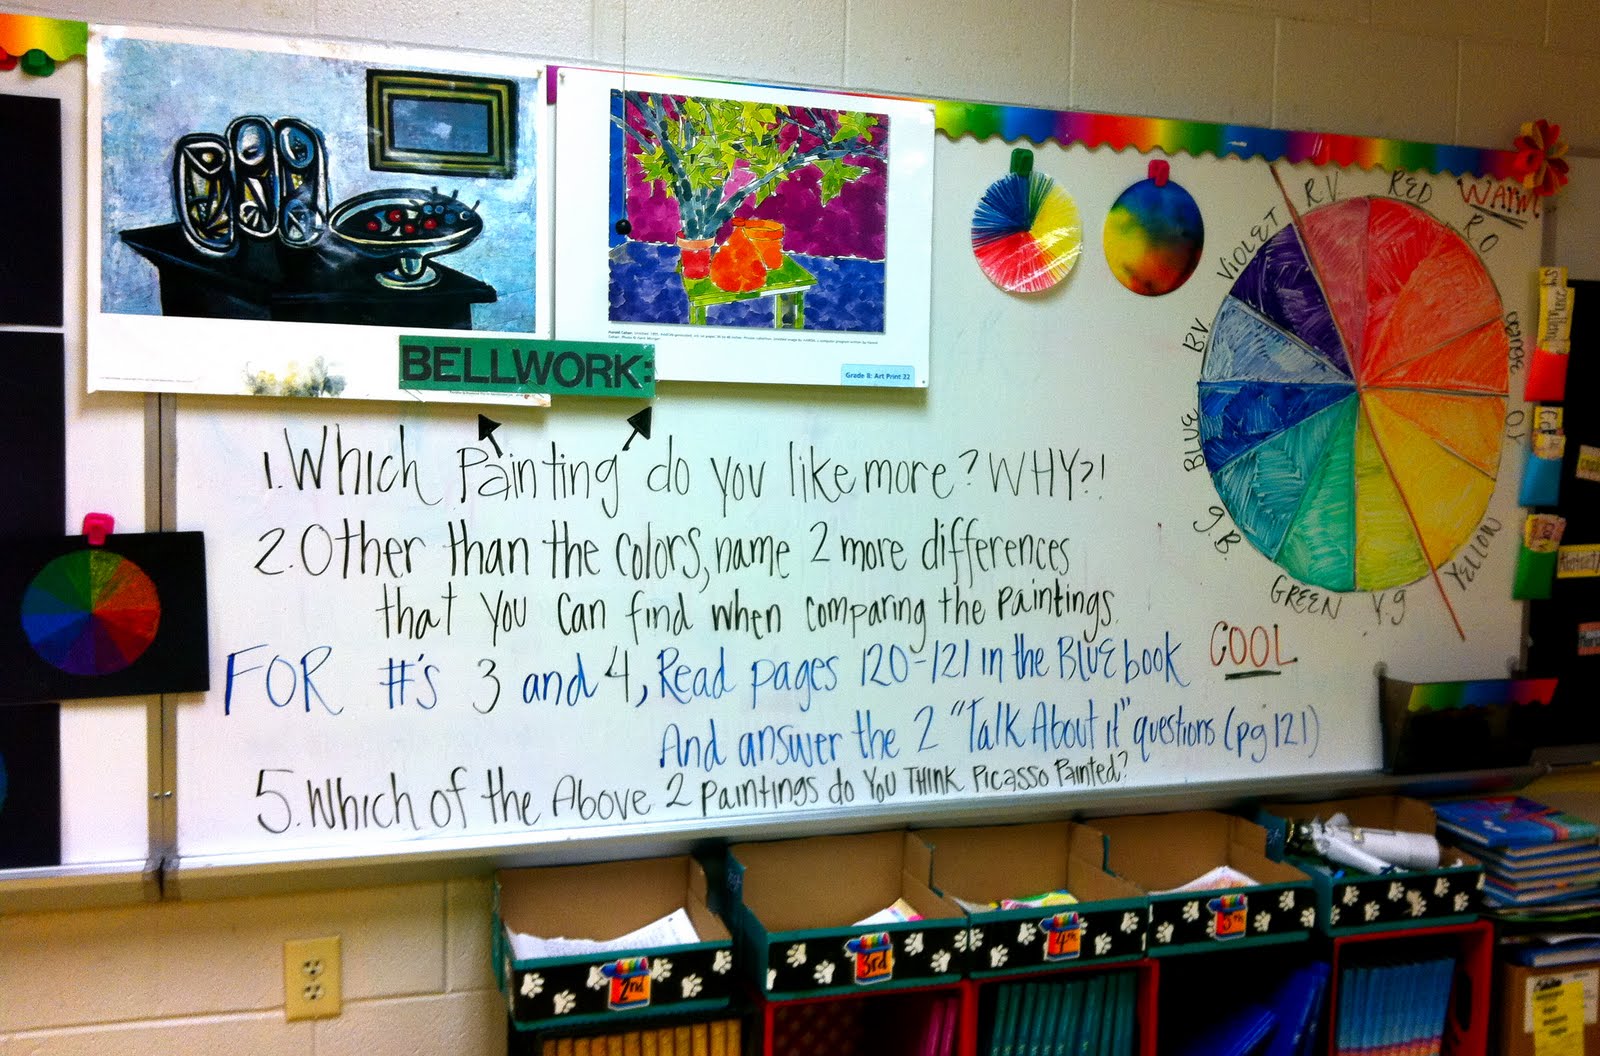 Grade 8: Art Print 32
BELLWORK:
1. Which Painting do you like more? WHY?!
2. Other than the colors, name 2 more differences
that you can find when comparing the paintings.
FOR #'s 3 and 4, Read pages 120-121 in the Blue book
And answer the 2 "Talk About it" questions (pg 121)
5. Which of the Above 2 paintings do You THINK Picasso Painted?
WARM
RED
RO
ORANGE
OY
YELLOW
Y.g
GREEN
g.B.
BLUE
B.V.
VIOLET
RV
COOL
2nd
3rd
4th
5th